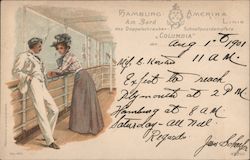 HAMBURG AMERIKA
LINIE
Am Bord
des Doppelschrauben-Schnellpostdampfers
"COLUMBIA"
Aug 1st 1901
11 A.M.
Expect to reach
Plymouth at 2 P.M.
Hamburg at 8 A.M.
Saturday - All well.
Regards